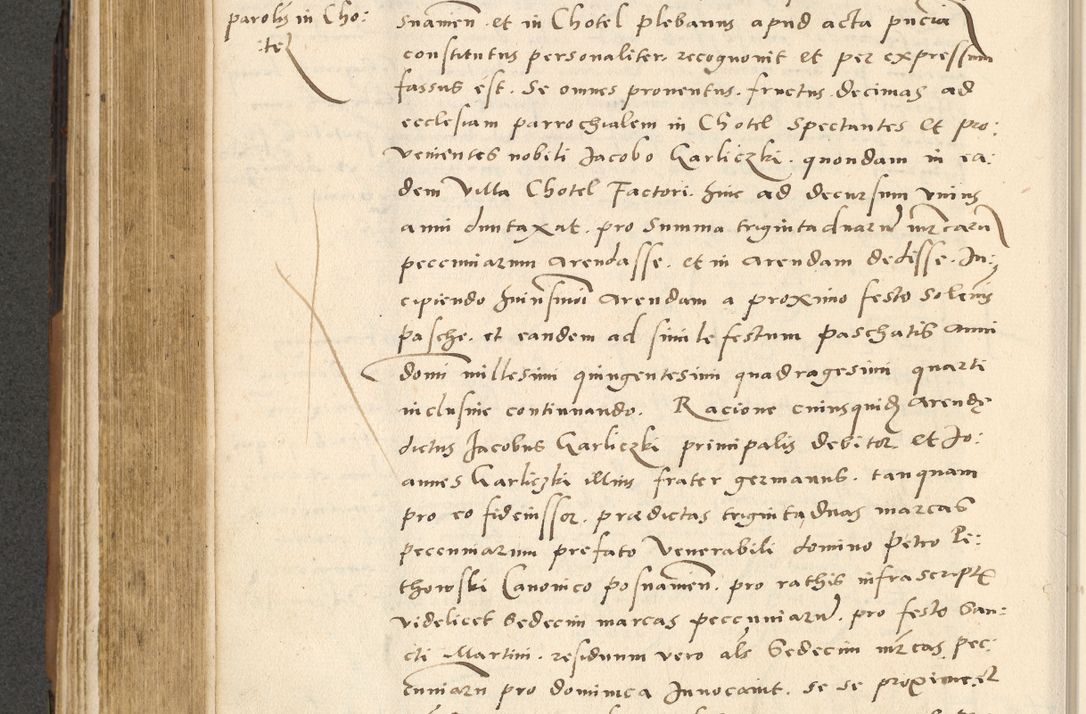 parolis in Cho:
:tel
snanien. et in Chotel plebanus apud acta pncia
constitutus personaliter. recognovit et per expressum
fassus est. Se omnes proventus. fructus. decimas ad
ecclesiam parrochialem in Chotel spectantes et pro:
venientes nobili Jacobo Garliczki. quondam in ea:
dem villa Chotel Factori. hinc ad decursum unius
anni duntaxat. pro summa triginta duarum mrcarum
pecceniarum arendasse. et in arendam dedisse. In:
cipiendo huiusmoi arendam a proximo festo solenis
pasche. et eandem ad simile festum paschatis anni
domi millesimi quingentesimi quadragesimi quarti
inclusive continuando. Racione cuiusquidem arende
dictus Jacobus Garliczki principalis debitor. et Jo:
annes Garliczki illius frater germanus. tanquam
pro eo fideiussor. praedictas triginta duas marcas
pecceniarum prefato venerabili domino Petro Le:
thowski Canonico posnanien. pro rathis infrascriptis
videlicet sedecim marcas pecceniarum. pro festo San:
cti Martini. residuum vero als sedecim mrcas pec:
cuniaru pro dominica Invocavit. se se proxime et